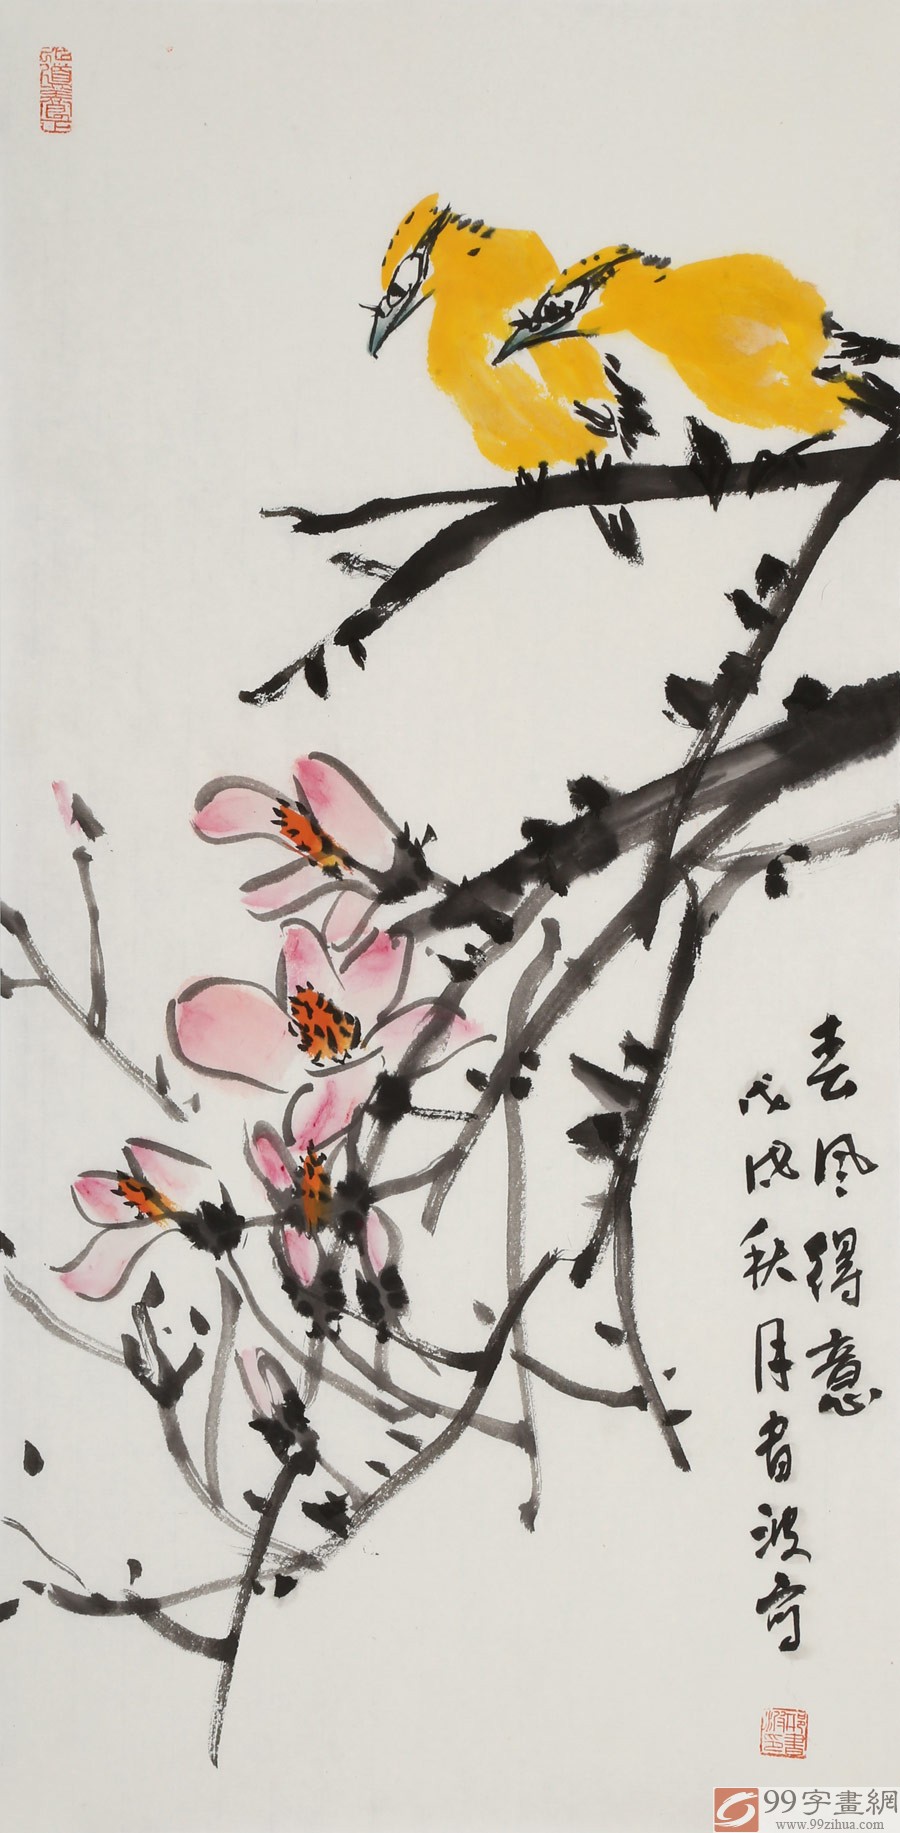 春风得意
戊戌秋月書波寫
99字畫網
www.99zihua.com